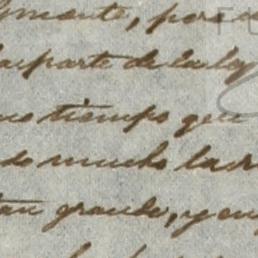 gmente, para
parte de la ley
mo tiempo que
do mucho la
tan grande, y en